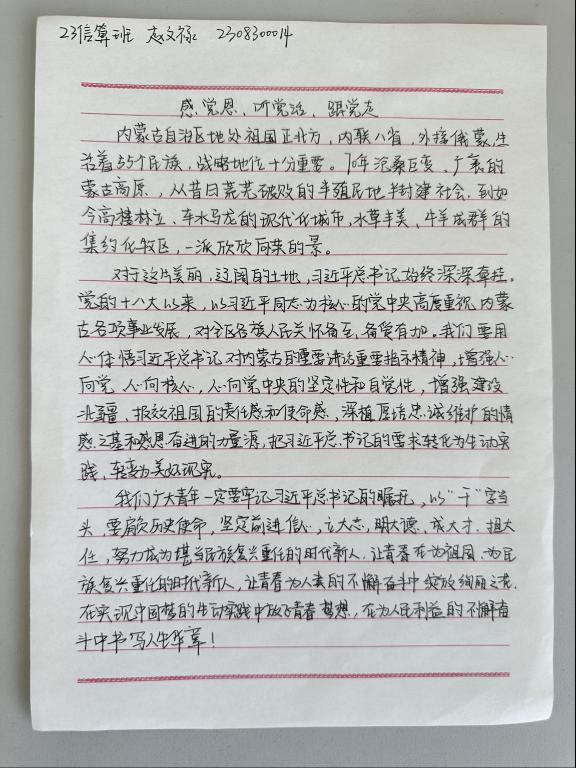 23信算班 赵文禄 230830014
感党恩、听党话、跟党走
内蒙古自治区地处祖国正北方，内联八省，外接俄蒙，生
活着55个民族，战略地位十分重要。70年沧桑巨变，广袤的
蒙古高原，从昔日荒芜破败的半殖民地半封建社会，到如
今高楼林立、车水马龙的现代化城市，水草丰美、牛羊成群的
集约化牧区，一派欣欣向荣的景。
对于这片美丽，辽阔的土地，习近平总书记始终深深牵挂。
党的十八大以来，以习近平同志为核心的党中央高度重视内蒙
古各项事业发展，对全区各族人民关怀备至、备赏有加。我们要用
心体悟习近平总书记对内蒙古的重要讲话重要指示精神，增强心
向党、心向核心，心向党中央的坚定性和自觉性，增强建设
北疆、报效祖国的责任感和使命感，深植厚培忠诚维护的情
感之基和感恩奋进的力量源，把习近平总书记的要求转化为生动实
践，转变为美好现实。
我们广大青年一定要牢记习近平总书记的嘱托，以“干”字当
头，要肩负历史使命，坚定前进信心，立大志，明大德、成大才、担大
任，努力成为堪当民族复兴重任的时代新人，让青春在为祖国、为民
族复兴重任的时代新人，让青春为人类的不懈奋斗中绽放绚丽之花，
在实现中国梦的生动实践中放飞青春梦想，在为人民利益的不懈奋
斗中书写人生华章！